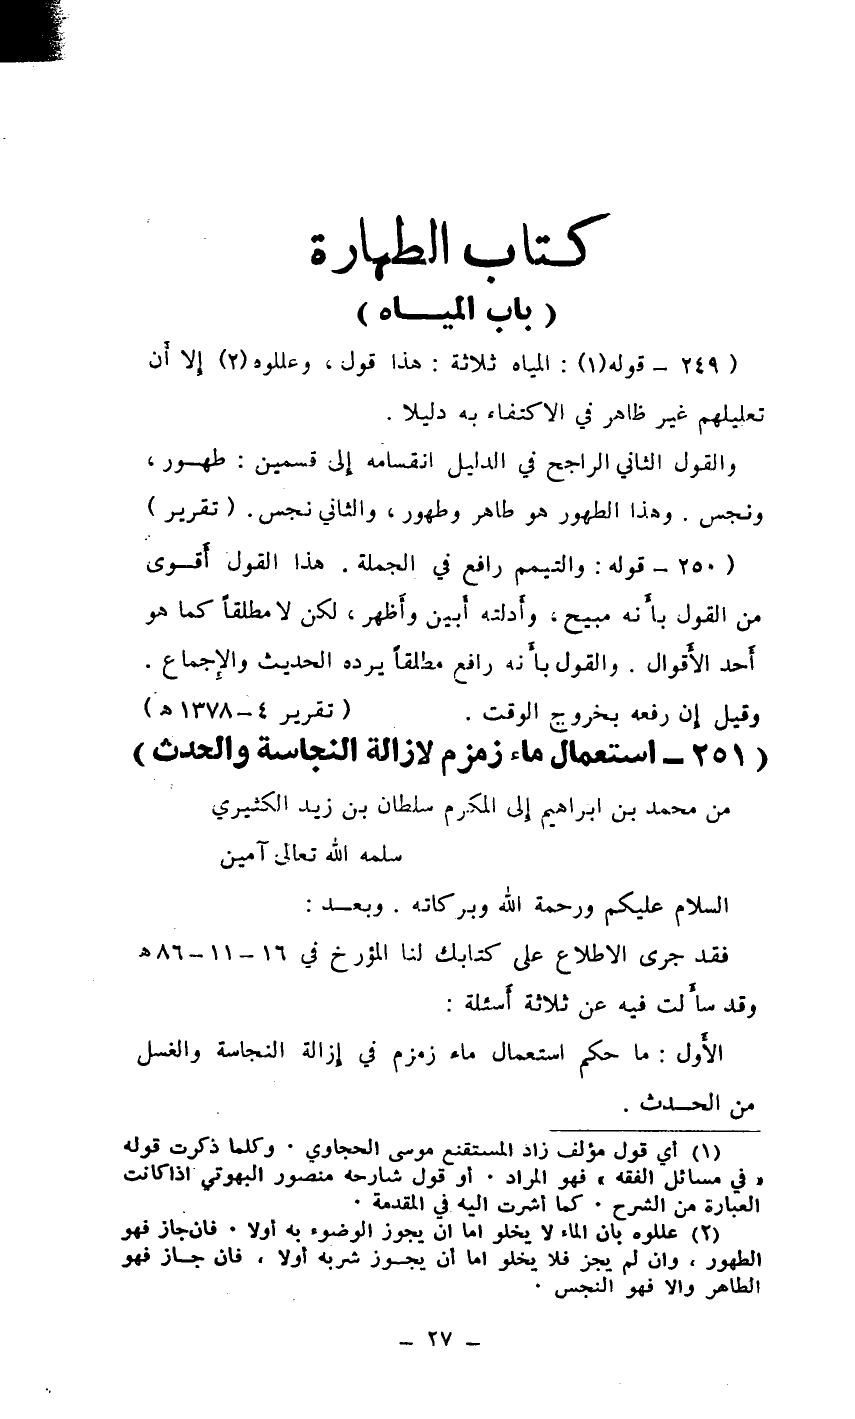 كتاب الطهارة
( باب الميـــاه )
( ٢٤٩ – قوله(١) : المياه ثلاثة : هذا قول ، وعللوه(٢) إلا أن
تعليلهم غير ظاهر في الاكتفاء به دليلا .
والقول الثاني الراجح في الدليل انقسامه إلى قسمين : طهـور ،
ونجس . وهذا الطهور هو طاهر وطهور ، والثاني نجس . ( تقرير )
( ٢٥٠ – قوله : والتيمم رافع في الجملة . هذا القول أقـوى
من القول بأنه مبيح ، وأدلته أبين وأظهر ، لكن لا مطلقاً كما هو
أحد الأقوال . والقول بأنه رافع مطلقاً يرده الحديث والإجماع .
وقيل إن رفعه بخروج الوقت . ( تقرير ٤ – ١٣٧٨ ه )
( ٢٥١ – استعمال ماء زمزم لازالة النجاسة والحدث )
من محمد بن ابراهيم إلى المكرم سلطان بن زيد الكثيري
سلمه الله تعالى آمين
السلام عليكم ورحمة الله وبركاته . وبعـــد :
فقد جرى الاطلاع على كتابك لنا المؤرخ في ١٦ – ١١ – ٨٦ ه
وقد سألت فيه عن ثلاثة أسئلة :
الأول : ما حكم استعمال ماء زمزم في إزالة النجاسة والغسل
من الحـــدث .
(١) أي قول مؤلف زاد المستقنع موسى الحجاوي . وكلما ذكرت قوله
« في مسائل الفقه » فهو المراد . أو قول شارحه منصور البهوتي اذا كانت
العبارة من الشرح . كما أشرت اليه في المقدمة .
(٢) عللوه بأن الماء لا يخلو اما ان يجوز الوضوء به أولا . فان جاز فهو
الطهور ، وان لم يجز فلا يخلو اما أن يجــوز شربه أولا ، فان جــاز فهو
الطاهر والا فهو النجس .
– ٢٧ –